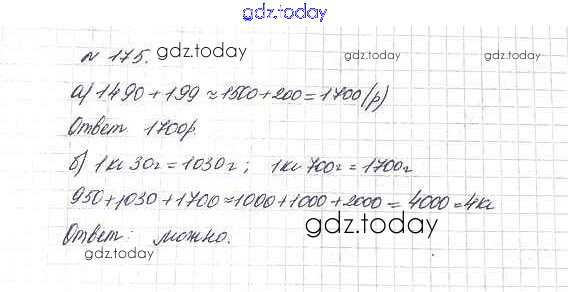 gdz.today
№ 175. gdz.today gdz.today gdz.today
а) 1490 + 199 ≈ 1500 + 200 = 1700 (р)
Ответ 1700р.
б) 1кг 30г = 1030г; 1кг 700г = 1700г
950 + 1030 + 1700 ≈ 1000 + 1000 + 2000 = 4000 = 4кг
Ответ: можно. gdz.today
gdz.today